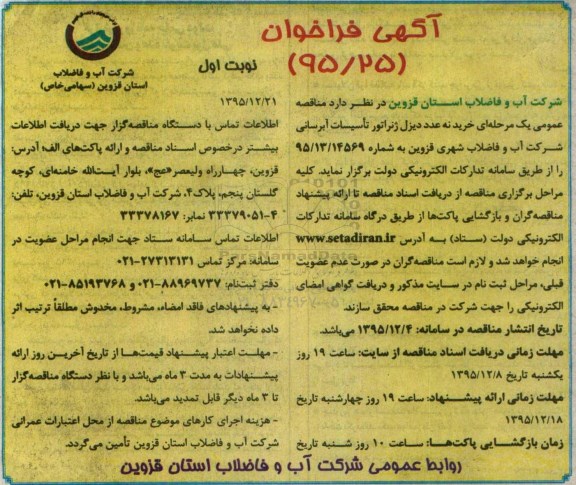 آگهی فراخوان
(۹۵/۲۵)
نوبت اول
شرکت آب و فاضلاب
استان قزوین (سهامی خاص)
شرکت آب و فاضلاب استان قزوین در نظر دارد مناقصه
عمومی یک مرحله‌ای خرید نه عدد دیزل ژنراتور تأسیسات آبرسانی
شرکت آب و فاضلاب شهری قزوین به شماره ۹۵/۱۳/۱۴۵۶۹
را از طریق سامانه تدارکات الکترونیکی دولت برگزار نماید. کلیه
مراحل برگزاری مناقصه از دریافت اسناد مناقصه تا ارائه پیشنهاد
مناقصه‌گران و بازگشایی پاکت‌ها از طریق درگاه سامانه تدارکات
الکترونیکی دولت (ستاد) به آدرس www.setadiran.ir
انجام خواهد شد و لازم است مناقصه‌گران در صورت عدم عضویت
قبلی، مراحل ثبت نام در سایت مذکور و دریافت گواهی امضای
الکترونیکی را جهت شرکت در مناقصه محقق سازند.
تاریخ انتشار مناقصه در سامانه: ۱۳۹۵/۱۲/۴ می‌باشد.
مهلت زمانی دریافت اسناد مناقصه از سایت: ساعت ۱۹ روز
یکشنبه تاریخ ۱۳۹۵/۱۲/۸
مهلت زمانی ارائه پیشنهاد: ساعت ۱۹ روز چهارشنبه تاریخ
۱۳۹۵/۱۲/۱۸
زمان بازگشایی پاکت‌ها: ساعت ۱۰ روز شنبه تاریخ
۱۳۹۵/۱۲/۲۱
اطلاعات تماس با دستگاه مناقصه‌گزار جهت دریافت اطلاعات
بیشتر درخصوص اسناد مناقصه و ارائه پاکت‌های الف؛ آدرس:
قزوین، چهارراه ولیعصر«عج»، بلوار آیت‌الله خامنه‌ای، کوچه
گلستان پنجم، پلاک۴، شرکت آب و فاضلاب استان قزوین، تلفن:
۴-۳۳۳۷۹۰۵۱ نمابر: ۳۳۳۷۸۱۶۷
اطلاعات تماس سامانه ستاد جهت انجام مراحل عضویت در
سامانه: مرکز تماس ۲۷۳۱۳۱۳۱-۰۲۱
دفتر ثبت‌نام: ۸۸۹۶۹۷۳۷-۰۲۱ و ۸۵۱۹۳۷۶۸-۰۲۱
- به پیشنهادهای فاقد امضاء، مشروط، مخدوش مطلقاً ترتیب اثر
داده نخواهد شد.
- مهلت اعتبار پیشنهاد قیمت‌ها از تاریخ آخرین روز ارائه
پیشنهادات به مدت ۳ ماه می‌باشد و با نظر دستگاه مناقصه‌گزار
تا ۳ ماه دیگر قابل تمدید می‌باشد.
- هزینه اجرای کارهای موضوع مناقصه از محل اعتبارات عمرانی
شرکت آب و فاضلاب استان قزوین تأمین می‌گردد.
روابط عمومی شرکت آب و فاضلاب استان قزوین